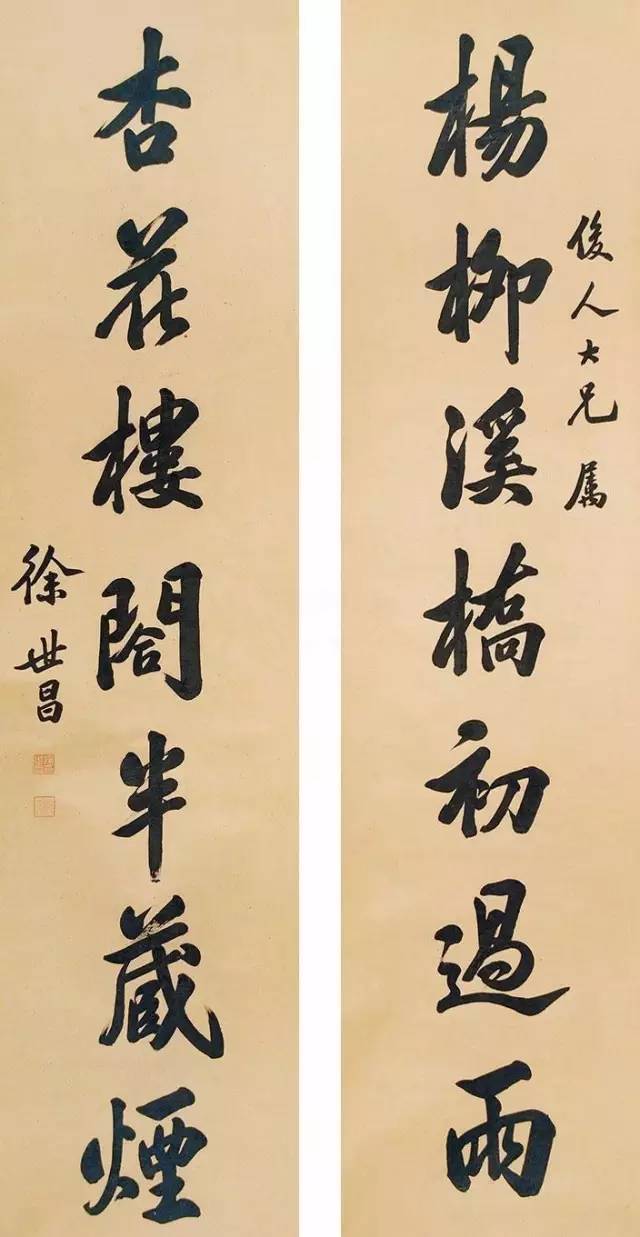 俊人大兄属
楊柳溪橋初過雨
杏花樓閣半藏煙
徐世昌